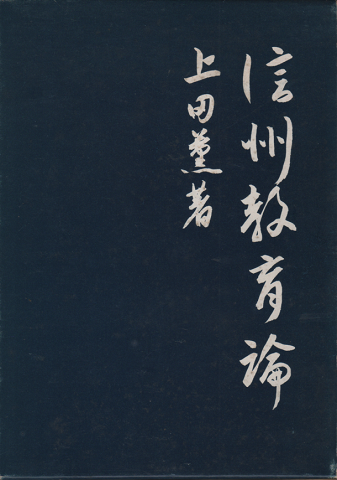 信州教育論
上田薫著